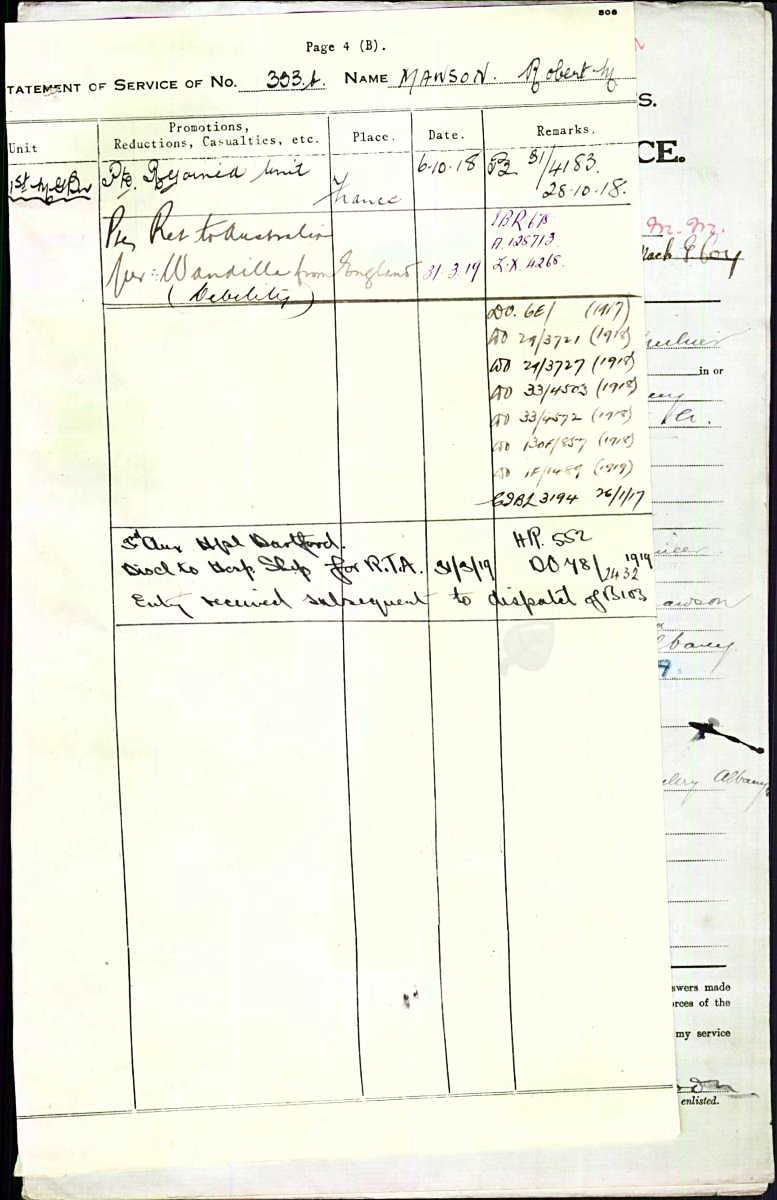 Page 4 (B).
TATEMENT OF SERVICE OF NO. 393.A. NAME MAWSON. Robert
Unit
Promotions,
Reductions, Casualties, etc.
Place.
Date.
Remarks.
1st M G Bn
Pte. Rejoined Unit
France
6-10-18
51/4183
28-10-18.
Pte Ret to Australia
per "Wandilla from England
(Debility)
31.3.19
A. 125713
L.X. 4265.
DO. 6E/ (1917)
DO 29/3721 (1918)
DO 29/3727 (1918)
DO 33/4503 (1918)
DO 33/4572 (1918)
DO 130F/857 (1918)
DO 1F/1489 (1919)
3194 26/1/17
3rd Aux Hpl Dartford.
Discd to Hosp. Ship for R.T.A.
31/3/19
HR. 552
DO 78/2432 1919
Entry received subsequent to dispatch of B103
S.
CE.
in or
Albany
swers made
rces of the
my service
enlisted.